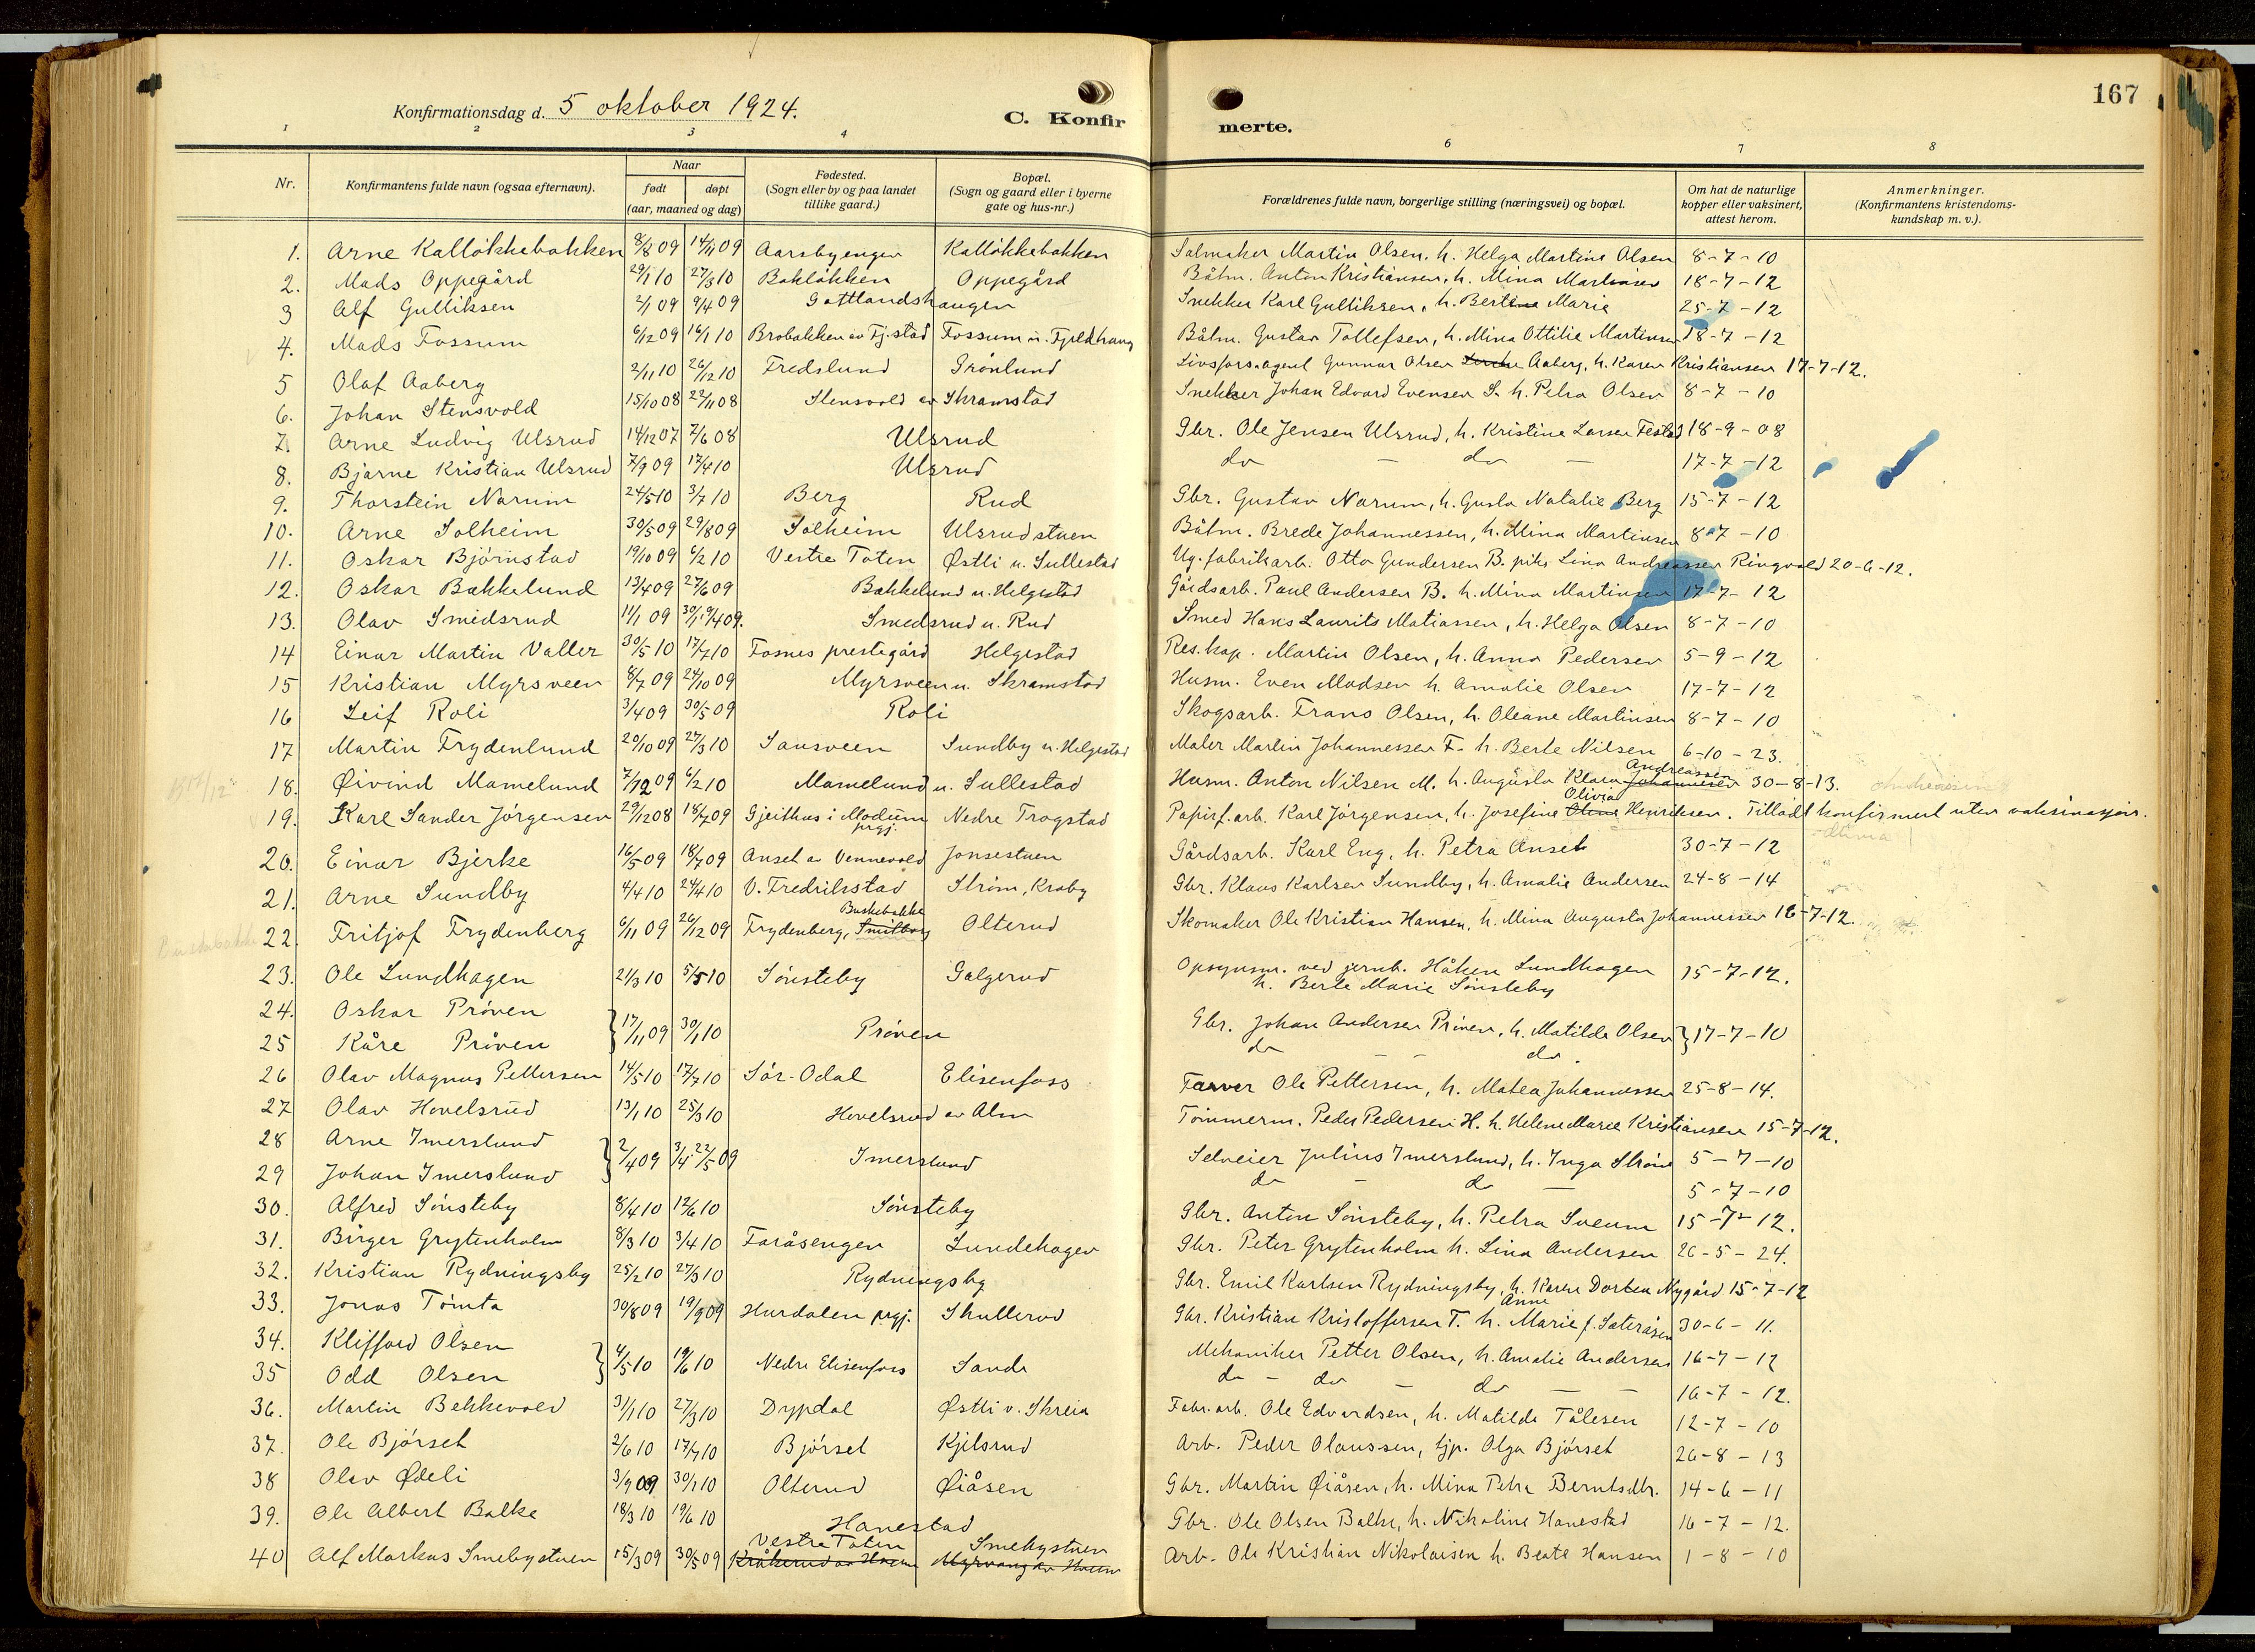 167
Konfirmationsdag d. 5 oktober 1924.
C. Konfirmerte.
1 2 3 4 6 7 8
Nr.
Konfirmantens fulde navn (ogsaa efternavn).
Naar
født døpt
(aar, maaned og dag)
Fødested.
(Sogn eller by og paa landet
tillike gaard.)
Bopæl.
(Sogn og gaard eller i byerne
gate og hus-nr.)
Forældrenes fulde navn, borgerlige stilling (næringsvei) og bopæl.
Om hat de naturlige
kopper eller vaksinert,
attest herom.
Anmerkninger.
(Konfirmantens kristendoms-
kundskap m. v.).
1. Arne Kalløkkebakken 8/8 09 14/11 09 Aarsbyengen Kalløkkebakken Salmaker Martin Olsen, h. Helga Martine Olsen 8-7-10
2. Mads Oppegård 29/1 10 27/3 10 Bakløkken Oppegård Båtm. Anton Kristiansen, h. Mina Martinsen 18-7-12
3 Alf Gulliksen 2/1 09 9/4 09 Gottlandshaugen Snekker Karl Gulliksen, h. Bertine Marie 25-7-12
4. Mads Fossum 6/12 09 16/1 10 Brobakken av Fj.stad Fossum u. Fjeldhaug Båtm. Gustav Tollefsen, h. Mina Ottilie Martinsen 18-7-12
5 Olaf Aaberg 2/11 10 26/12 10 Fredslund Grønlund Livsfors.agent Gunnar Olsen Aaberg, h. Karen Kristiansen 17-7-12.
6. Johan Stensvold 15/10 08 22/11 08 Stensvold av Skramstad Snekker Johan Edvard Evensen S. h. Petra Olsen 8-7-10
7. Arne Ludvig Ulsrud 14/12 07 7/6 08 Ulsrud Gbr. Ole Jensen Ulsrud, h. Kristine Larsen Festad 18-9-08
8. Bjarne Kristian Ulsrud 7/9 09 17/4 10 Ulsrud do - do - 17-7-12
9. Thorstein Narum 24/5 10 3/7 10 Berg Rud Gbr. Gustav Narum, h. Gusta Natalie Berg 15-7-12
10. Arne Solheim 30/5 09 29/8 09 Solheim Ulsrudstuen Båtm. Brede Johannessen, h. Mina Martinsen 8-7-10
11. Oskar Bjørnstad 19/10 09 6/2 10 Vestre Toten Østli u. Sullestad Ug. fabrikarb. Otto Gundersen B. pike Lina Andreassen Ringvold 20-6-12.
12. Oskar Bakkelund 13/4 09 27/6 09 Bakkelund u. Helgestad Gårdsarb. Paul Andersen B. h. Mina Martinsen 17-7-12
13. Olav Smedsrud 11/1 09 30/1 9/4 09. Smedsrud u. Rud Smed Hans Laurits Matiassen, h. Helga Olsen 8-7-10
14 Einar Martin Valler 30/5 10 17/7 10 Fosnes prestegård Helgestad Res.kap. Martin Olsen, h. Anna Pedersen 5-9-12
15 Kristian Myrsveen 8/7 09 24/10 09 Myrsveen u. Skramstad Husm. Even Madsen h. Amalie Olsen 17-7-12
16 Leif Roli 3/4 09 30/5 09 Roli Skogsarb. Frans Olsen, h. Oleane Martinsen 8-7-10
17 Martin Frydenlund 20/10 09 27/3 10 Sansveen Sundby u. Helgestad Maler Martin Johannessen F. h. Berte Nilsen 6-10-23.
18. Øivind Mamelund 7/12 09 6/2 10 Mamelund u. Sullestad Husm. Anton Nilsen M. h. Augusta Klara Johannesen Andreassen 30-8-13.
19. Karl Sander Jørgensen 29/12 08 18/7 09 Gjeithus i Modum prgj. Nedre Trogstad Papirf.arb. Karl Jørgensen, h. Josefine Oline Olivia Henriksen. Tilladt konfirmert uten vaksinasjon.
20. Einar Bjerke 16/5 09 18/7 09 Anset av Vennevold Jonsestuen Gårdsarb. Karl Eng, h. Petra Anset 30-7-12
21. Arne Sundby 4/4 10 24/4 10 V. Fredrikstad Strøm, Kraby Gbr. Klaus Karlsen Sundby, h. Amalie Andersen 24-8-14
22. Fritjof Frydenberg 6/11 09 26/12 09 Frydenberg, Smitborg Buskebakke Olterud Skomaker Ole Kristian Hansen, h. Mina Augusta Johannessen 16-7-12.
23. Ole Lundhagen 21/3 10 5/5 10 Sønsteby Galgerud Opsynsm. ved jernb. Håken Lundhagen 15-7-12.
h. Berte Marie Sønsteby
24. Oskar Prøven } 17/11 09 30/1 10 Prøven Gbr. Johan Andersen Prøven, h. Matilde Olsen } 17-7-10
25 Kåre Prøven do - - do.
26 Olav Magnus Pettersen 14/5 10 17/7 10 Sør-Odal Elisenfoss Farver Ole Pettersen, h. Matea Johannessen 25-8-14.
27 Olav Hovelsrud 13/1 10 25/3 10 Hovelsrud av Alm Tømmerm. Peder Pedersen H. h. Helene Marie Kristiansen 15-7-12.
28 Arne Imerslund } 2/4 09 3/4 22/5 09 Imerslund Selveier Julius Imerslund, h. Inga Strøm 5-7-10
29 Johan Imerslund do - do - 5-7-10
30. Alfred Sønsteby 8/4 10 12/6 10 Sønsteby Gbr. Anton Sønsteby, h. Petra Sveum 15-7-12.
31. Birger Grytenholm 8/3 10 3/4 10 Faråsengen Lundehagen Gbr. Peter Grytenholm h. Lina Andersen 26-5-24.
32. Kristian Rydningsby 25/2 10 27/3 10 Rydningsby Gbr. Emil Karlsen Rydningsby, h. Karen Dortea Nygård 15-7-12
33. Jonas Tømta 30/8 09 19/9 09 Hurdalen prgj. Skullerud Gbr. Kristian Kristoffersen T. h. Anne Marie f. Sæteråsen 30-6-11.
34. Klifford Olsen } 4/5 10 19/6 10 Nedre Elisenfoss Sande Mekaniker Petter Olsen, h. Amalie Andersen 16-7-12
35 Odd Olsen do - do - do - - 16-7-12.
36. Martin Bekkevold 31/1 10 27/3 10 Dypdal Østli v. Skreia Fabr.arb. Ole Edvardsen, h. Matilde Tålesen 12-7-10
37. Ole Bjørset 2/6 10 17/7 10 Bjørset Kjelsrud Arb. Peder Olaussen, tjp. Olga Bjørset 26-8-13
38 Olav Ødeli 3/9 09 30/1 10 Olterud Øiåsen Gbr. Martin Øiåsen, h. Mina Petra Berntsdtr. 14-6-11
39. Ole Albert Balke 18/3 10 19/6 10 Hanestad Gbr. Ole Olsen Balke, h. Nikoline Hanestad 16-7-12.
40 Alf Markus Smebystuen 15/3 09 30/5 09 Vestre Toten Smebystuen Arb. Ole Kristian Nikolaisen h. Beate Hansen 1-8-10